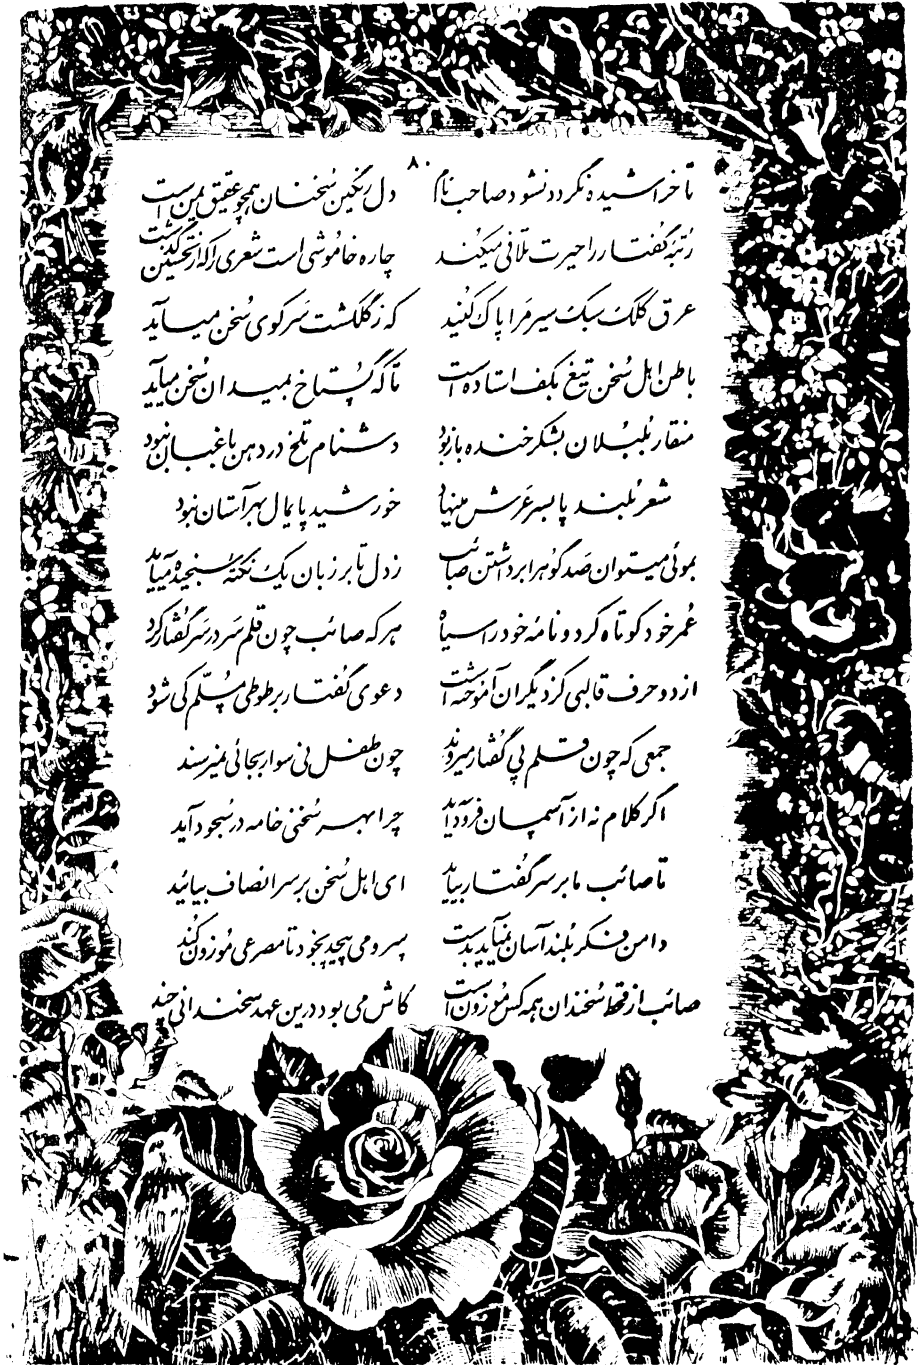 ۸۰
تا خراشیده نگردد نشود صاحب نام دل رنگین سخنان همچو عقیق یمن است
رتبه گفتار را حیرت تلافی میکند چاره خاموشی است شعری را که از تحسین گذشت
عرق کلک سبک سیر مرا پاک کنید که ز گلگشت سر کوی سخن میآید
باطن اهل سخن تیغ بکف استاده است تا که گستاخ بمیدان سخن میآید
منقار بلبلان بشکر خنده باز بود دشنام تلخ در دهن باغبان نبود
شعر بلند پا بسر عرش مینهاد خورشید پایمال سر آستان نبود
بموئی میتوان صد گوهر ابرداشتن صائب ز دل تا بر زبان یک نکته سنجیده میآید
عمر خود کوتاه کرد و نامه خود را سیاه هر که صائب چون قلم سر در سر گفتار کرد
از دو حرف قالبی کز دیگران آموخته است دعوی گفتار بر طوطی مسلم کی شود
جمعی که چون قلم پی گفتار میروند چون طفل نی سوار بجائی نمیرسند
اگر کلام نه از آسمان فرود آید چرا بهر سخنی خامه در سجود آید
تا صائب ما بر سر گفتار بیاید ای اهل سخن بر سر انصاف بیائید
دامن فکر بلند آسان نمیآید بدست سرو می پیچد بخود تا مصرعی موزون کند
صائب از قحط سخندان همه کس موزون است کاش می بود درین عهد سخندانی چند